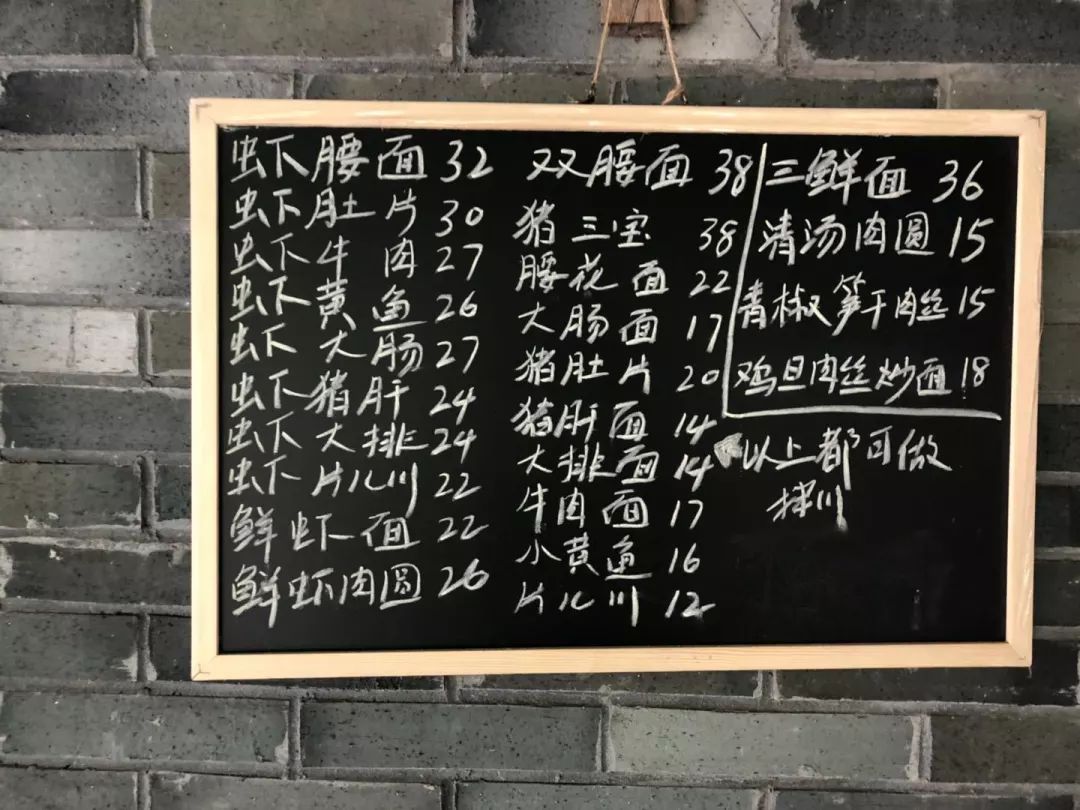 虾腰面 32
虾肚片 30
虾牛肉 27
虾黄鱼 26
虾大肠 27
虾猪肝 24
虾大排 24
虾片儿川 22
鲜虾面 22
鲜虾肉圆 26
双腰面 38
猪三宝 38
腰花面 22
大肠面 17
猪肚片 20
猪肝面 14
大排面 14
牛肉面 17
小黄鱼 16
片儿川 12
三鲜面 36
清汤肉圆 15
青椒笋干肉丝 15
鸡旦肉丝炒面 18
以上都可做
拌川